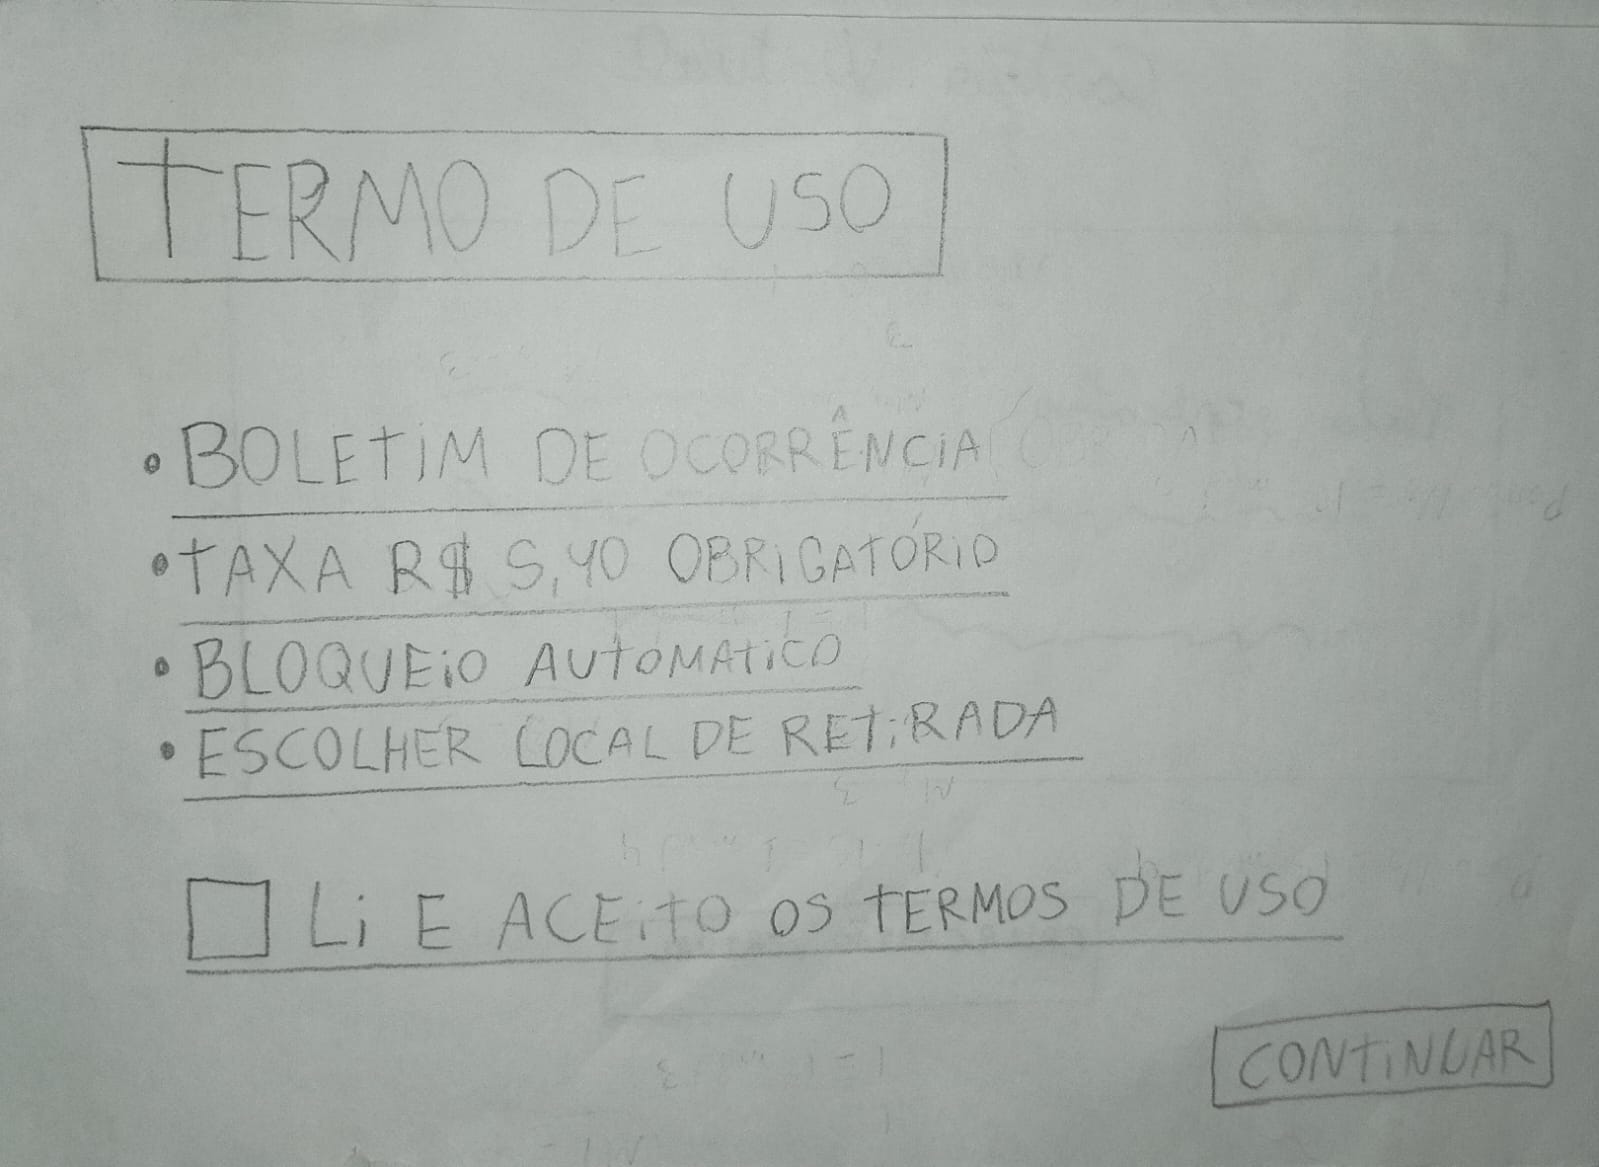 TERMO DE USO
• BOLETIM DE OCORRÊNCIA
• TAXA R$ 5,40 OBRIGATÓRIO
• BLOQUEIO AUTOMATICO
• ESCOLHER LOCAL DE RETIRADA
LI E ACEITO OS TERMOS DE USO
CONTINUAR